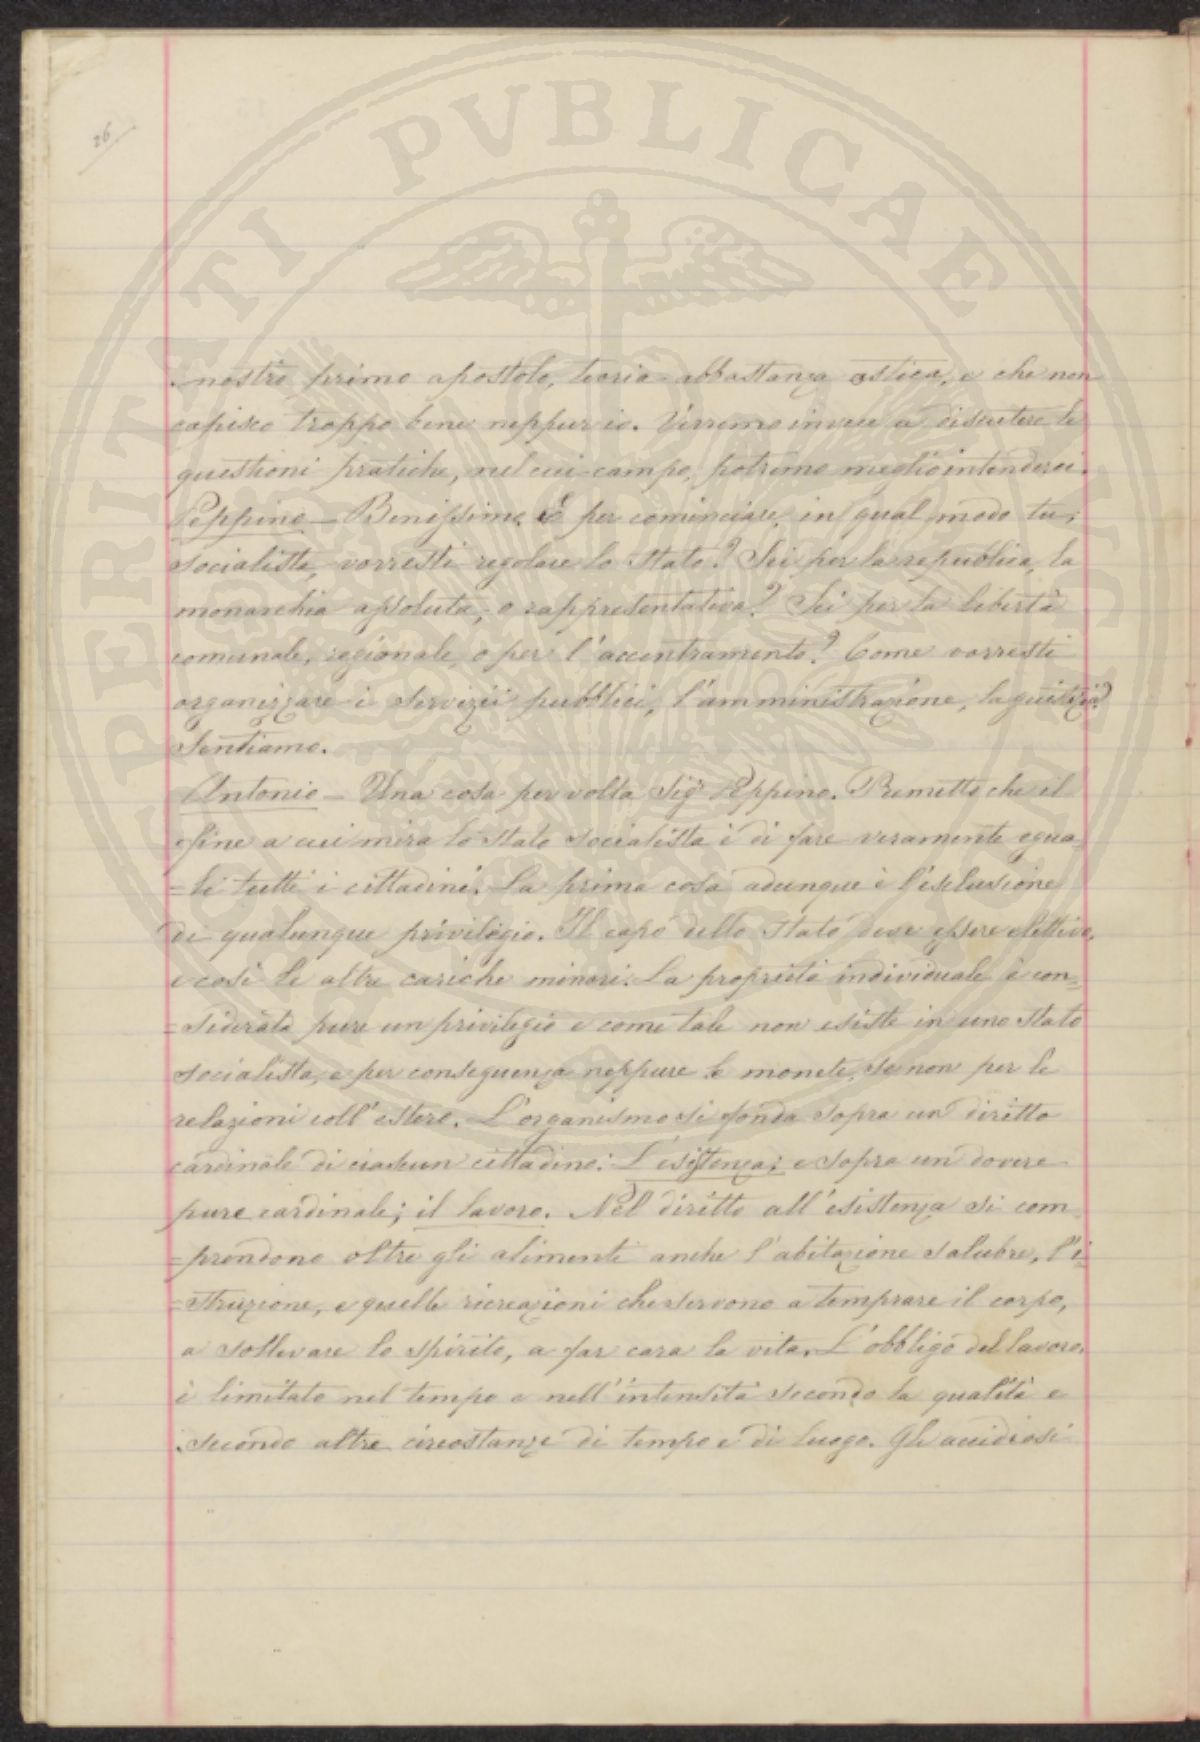 26
nostro primo apostolo, teoria abbastanza astica, e che non
capisco troppo bene neppur io. Verremo invece a discutere le
questioni pratiche, nel cui campo, potremo meglio intenderci.
Peppino — Benissimo. E per cominciare, in qual modo tu,
socialista, vorresti regolare lo Stato? Sei per la republica, la
monarchia assoluta, o rappresentativa? Sei per la libertà
comunale, regionale, o per l'accentramento? Come vorresti
organizzare i servizii pubblici, l'amministrazione, la giustizia?
Sentiamo.
Antonio — Una cosa per volta Sigr Peppino. Premetto che il
fine a cui mira lo Stato socialista è di fare veramente egua-
=li tutti i cittadini. La prima cosa adunque è l'esclusione
di qualunque privilegio. Il capo dello Stato deve essere elettivo,
e così le altre cariche minori. La proprietà individuale è con=
=siderata pure un privilegio e come tale non esiste in uno Stato
socialista, e per conseguenza neppure le monete, se non per le
relazioni coll'estero. L'organismo si fonda sopra un diritto
cardinale di ciascun cittadino: L'esistenza; e sopra un dovere
pure cardinale; il lavoro. Nel diritto all'esistenza si com=
=prendono oltre gli alimenti anche l'abitazione salubre, l'i=
=struzione, e quelle ricreazioni che servono a temprare il corpo,
a sollevare lo spirito, a far cara la vita. L'obbligo del lavoro,
è limitato nel tempo e nell'intensità secondo la qualità e
secondo altre circostanze di tempo e di luogo. Gli accidiosi
PERITATI PUBLICAE